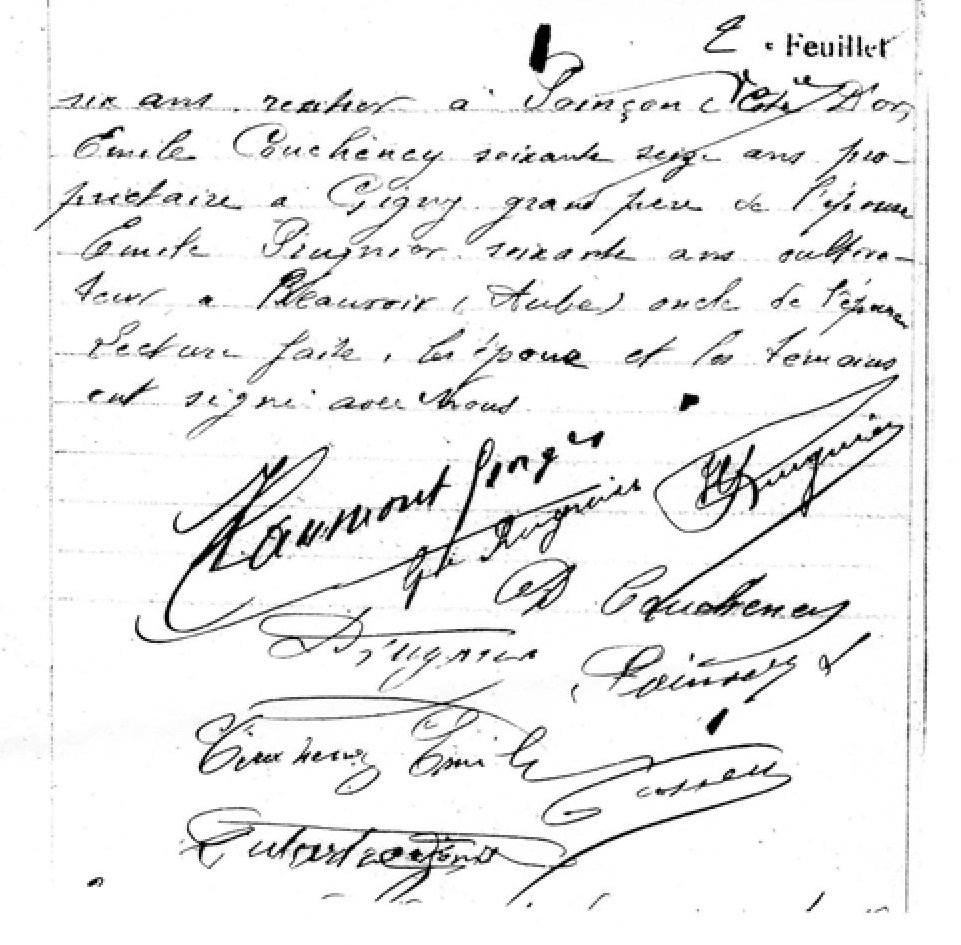 2 e Feuillet
six ans rentier à Poinçon (Côte D'or,
Emile Couchency soixante seize ans pro-
priétaire a Gigny grand père de l'épouse
Emile Prugnier soixante ans cultiva-
teur a Beauvoir (Aube) oncle de l'épouse
Lecture faite, les époux et les témoins
ont signé avec Nous
Georges
Prugnier
Prugnier
Couchency
Prugnier
Couchency Emile